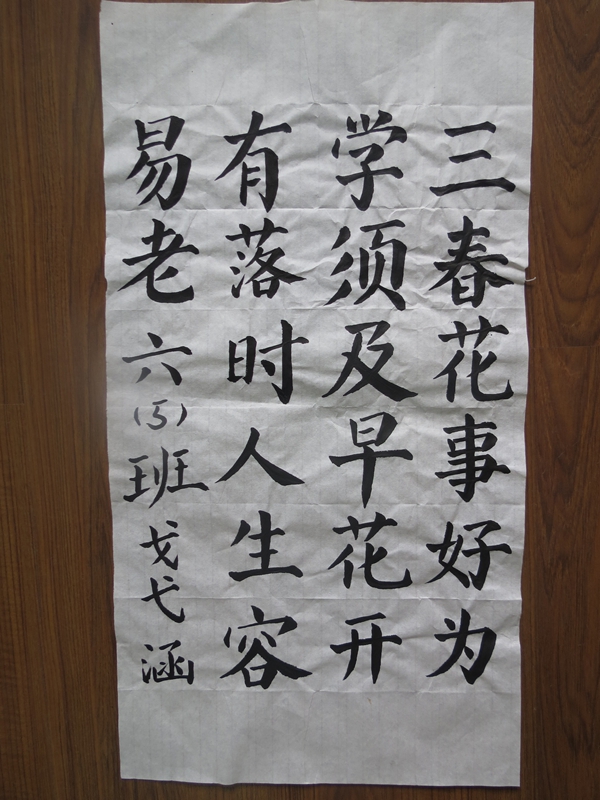 三春花事好为
学须及早花开
有落时人生容
易老 六(5)班 戈弋涵